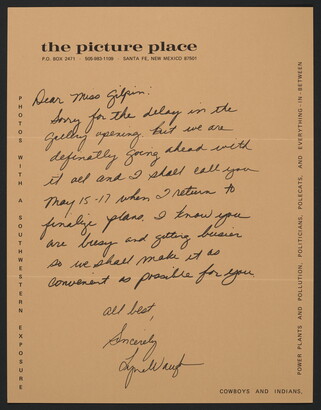 the picture place
P.O. BOX 2471 · 505-983-1109 · SANTA FE, NEW MEXICO 87501
Dear Miss Gilpin:
Sorry for the delay in the
gallery opening but we are
definatly going ahead with
it all and I shall call you
May 15-17 when I return to
finalize plans. I know you
are busy and getting busier
so we shall make it as
convenient as possible for you.
all best,
Sincerely
PHOTOS WITH A SOUTHWESTERN EXPOSURE
COWBOYS AND INDIANS,
POWER PLANTS AND POLLUTION, POLITICIANS, POLECATS, AND EVERYTHING-IN-BETWEEN